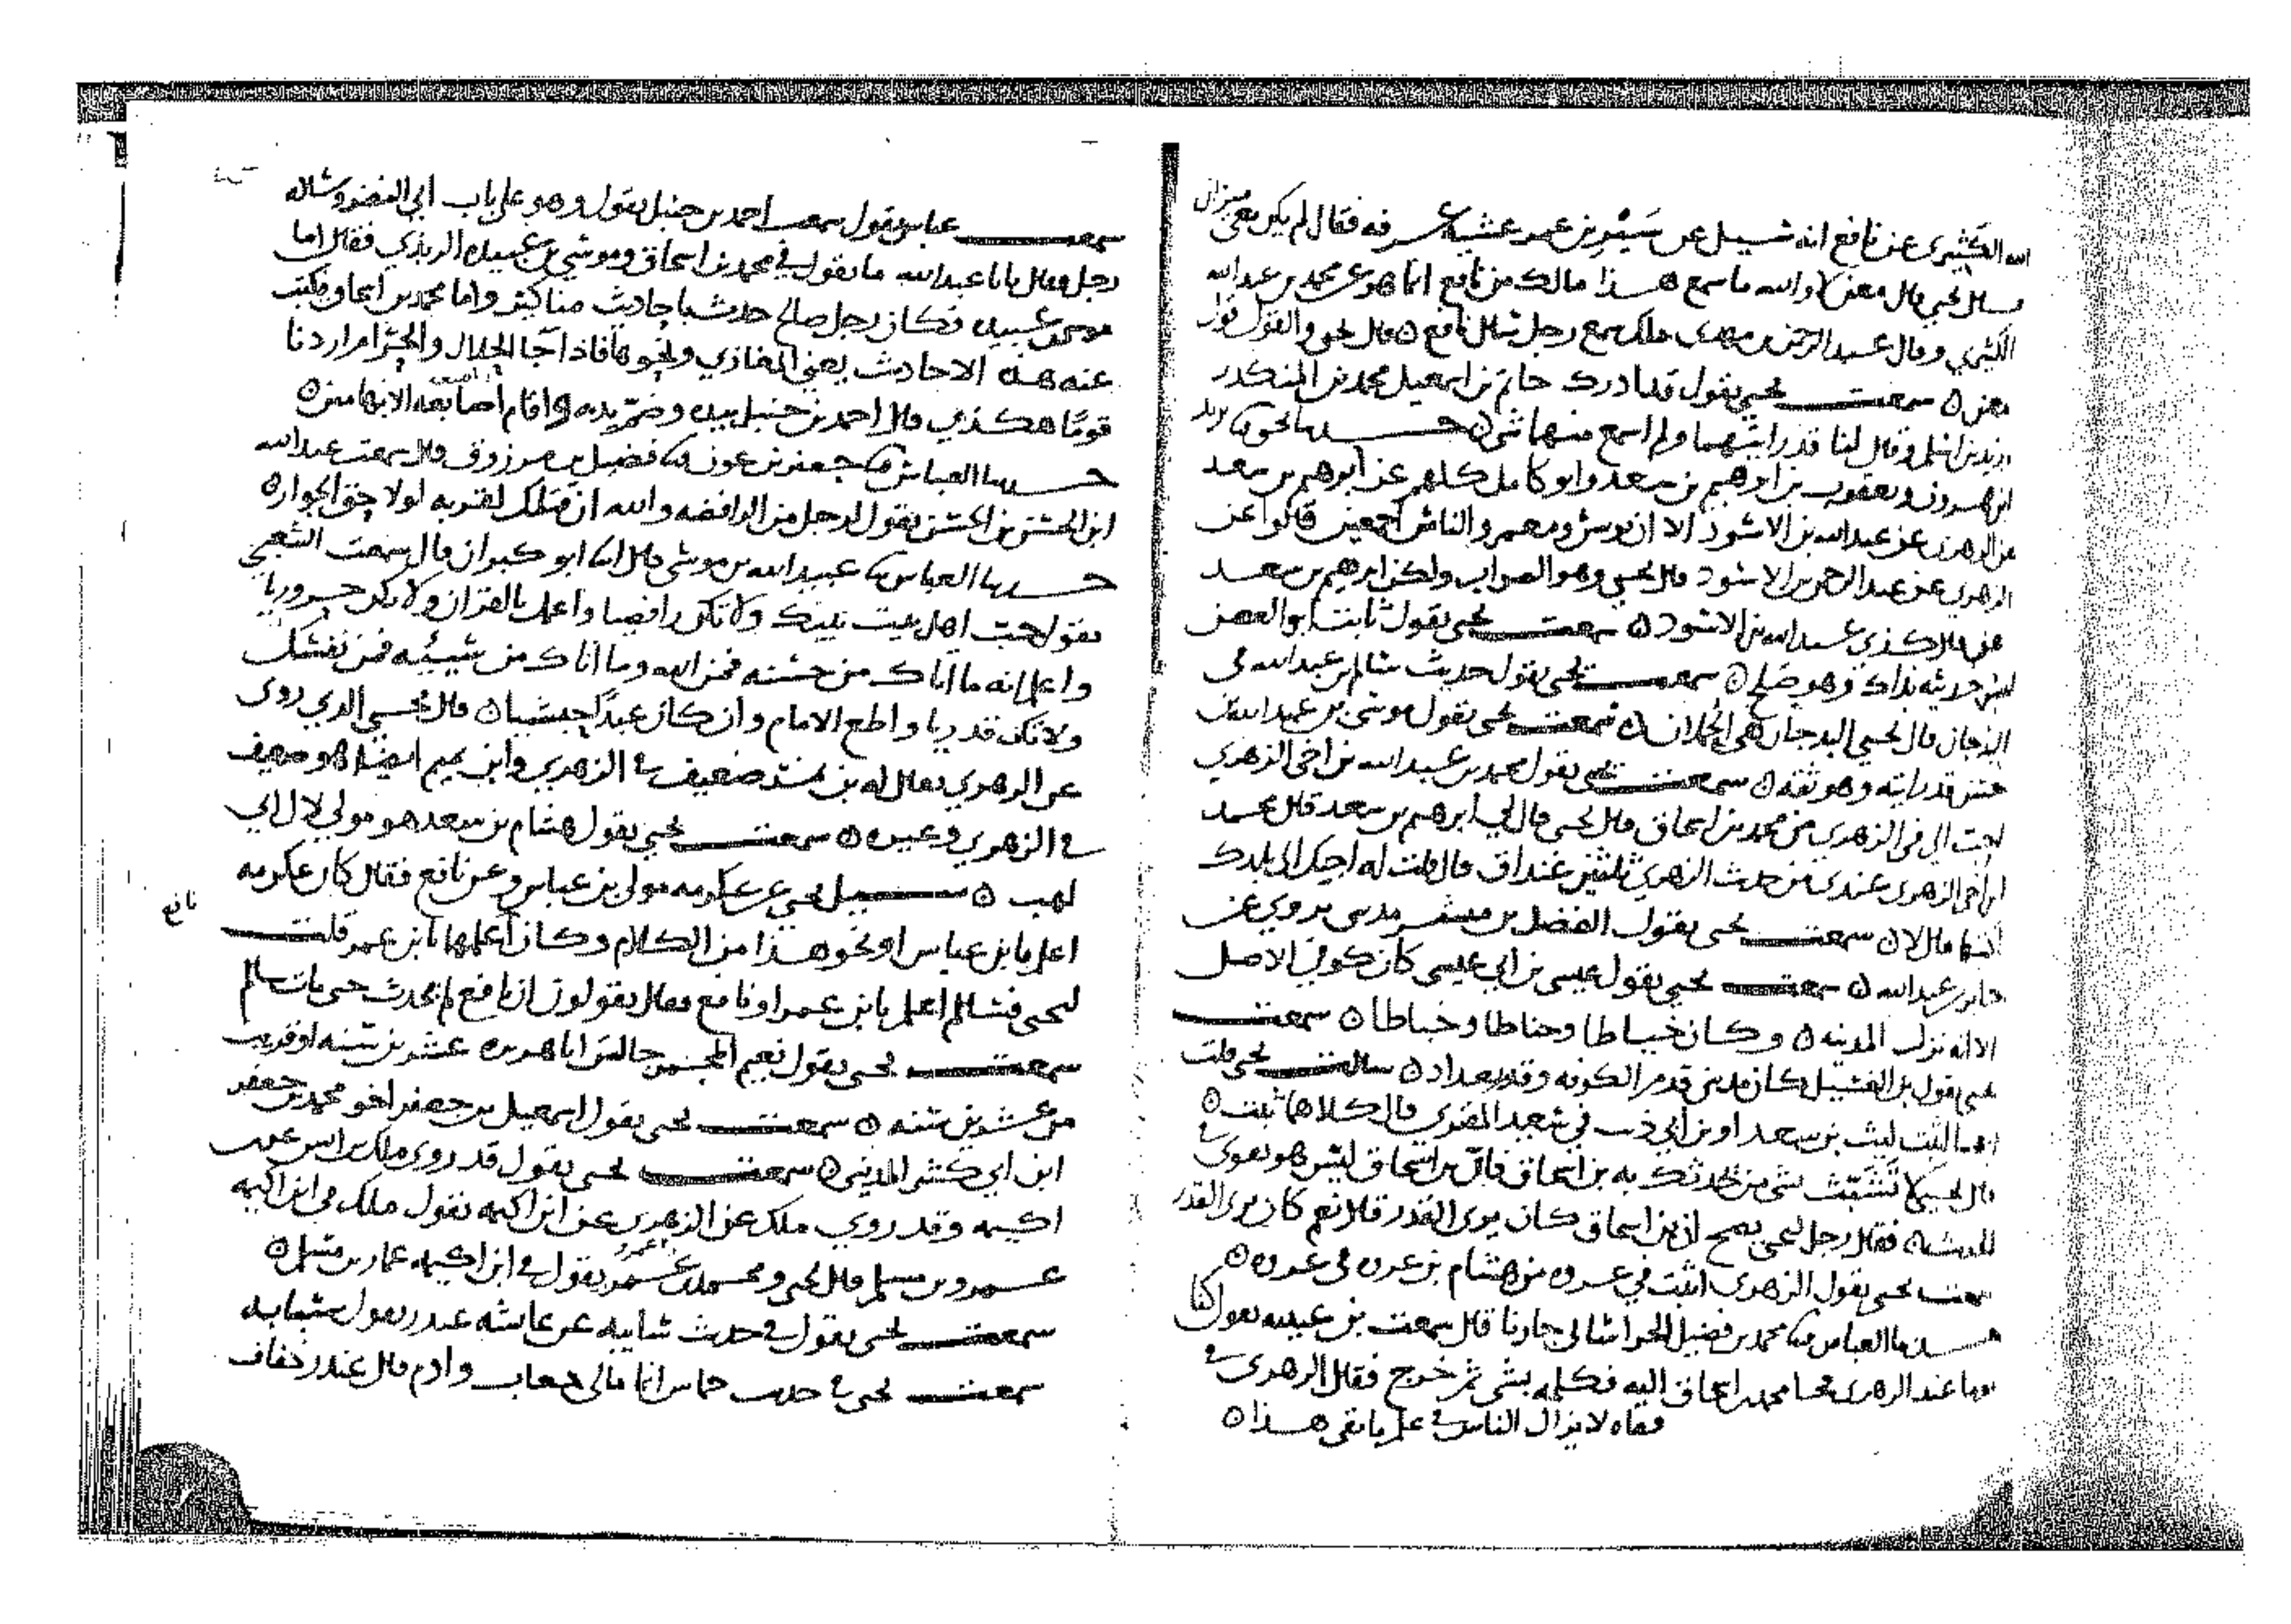 الله الكثيري عن نافع انه سئل عن سير بن عمر عشية عرفه فقال لم يكن يعني
سئل يحيى قال معن لا والله ما سمع هذا مالك من نافع انما هو عن محمد بن عبد الله
الكثيري وقال عبد الرحمن بن مهدي ملك سمع رجل سال نافع ٥ قال يحيى والقول قول
معن ٥ سمعت يحيى يقول قد ادرك حاتم بن اسمعيل محمد بن المنكدر
وزيد بن اسلم وقال لنا قد رايتهما ولم اسمع منهما شي ٥ حدثنا يحيى يزيد
بن هرون ويعقوب بن ابرهيم بن سعد وابو كامل كلهم عن ابرهيم بن سعد
عن الزهري عن عبد الله بن الاسود الا ان يونس ومعمر والناس اجمعين قالوا عن
الزهري عن عبد الرحمن بن الاسود قال يحيى وهو الصواب ولكن ابرهيم بن سعد
عن قال كذي عبد الله بن الاسود ٥ سمعت يحيى يقول ثابت ابو الغصن
ليس حديثه بذاك وهو صلح ٥ سمعت يحيى يقول حديث سالم بن عبد الله في
قال يحيى هي الحملان ٥ سمعت يحيى يقول موسى بن عبد الله بن
حسن قد رايته وهو ثقه ٥ سمعت يحيى يقول محمد بن عبد الله بن اخي الزهري
احب الي في الزهري من محمد بن اسحاق قال يحيى قال لي ابرهيم بن سعد قال محمد
ابن اخي الزهري عندي من حديث الزهري ثلثين قال قلت له اجيك الى بلدك
قال لا ٥ سمعت يحيى يقول الفضل بن مبشر مديني يروي عن
جابر بن عبد الله ٥ سمعت يحيى يقول عيسى بن ابي عيسى كان كوفي الاصل
الا انه نزل المدينه ٥ وكان خياطا وحناطا وخباطا ٥ سمعت
يحيى يقول بن الغسيل كان مديني قدم الكوفه وقدم بغداد ٥ سالت يحيى قلت
ايما اثبت ليث بن سعد او بن ابي ذيب في سعيد المقبري قال كلاهما ثبت ٥
قال يحيى لا تشبث بشي من يحدثك به بن اسحاق فان بن اسحاق ليس هو بقوي في
الحديث فقال رجل ليحيى يصح ان بن اسحاق كان يرى القدر قال نعم كان يرى القدر
سمعت يحيى يقول الزهري اثبت في عروه من هشام بن عروه في عروه ٥
حدثنا العباس محمد بن فضيل الخراساني جارنا قال سمعت بن عيينه يقول كنا
يوما عند الزهري فجا محمد بن اسحاق اليه فكلمه بشي ثم خرج فقال الزهري في
قفاه لا يزال الناس في علم ما بقي هذا ٥
سمعت عباس يقول سمعت احمد بن حنبل يقول وهو على باب ابي النضر وساله
رجل وقال يا ابا عبد الله ما تقول في محمد بن اسحاق وموسى بن عبيده الربذي فقال اما
موسى بن عبيده فكان رجل صالح حدث باحاديث مناكير واما محمد بن اسحاق فيكتب
عنه هذه الاحاديث يعني المغازي ونحوها فاذا جا الحلال والحرام اردنا
قوما هكذي قال احمد بن حنبل بيده وضم يديه واقام اصابعه الابهامين ٥
حدثنا العباس جعفر بن عون فضيل بن مرزوق قال سمعت عبد الله
ابن الحسن بن الحسن يقول لرجل من الرافضه والله ان قتلك لقربه لولا حق الجوار ٥
حدثنا العباس عبيد الله بن موسى قال انا ابو كبران قال سمعت الشعبي
يقول حب اهل بيت نبيك ولا تكن رافضيا واعمل بالقران ولا تكن حروريا
واعلم انه ما اتاك من حسنه فمن الله وما اتاك من سيئه فمن نفسك
ولا تكن قدريا واطع الامام وان كان عبدا حبشيا ٥ قال يحيى الذي روى
عن الزهري يقال له ضعيف في الزهري وابن تميم ايضا هو ضعيف
في الزهري وغيره ٥ سمعت يحيى يقول هشام بن سعد هو مولى لال ابي
لهب ٥ سئل يحيى عن عكرمه مولى بن عباس وعن نافع فقال كان عكرمه
نافع
اعلم بابن عباس او نحو هذا من الكلام وكان اعلمها بابن عمر قلت
ليحيى فسالم اعلم بابن عمر او نافع فقال يقولون ان نافع لم يحدث حتى مات سالم
سمعت يحيى يقول نعيم المجمر جالس ابا هريره عشرين سنه او قريب
من عشرين سنه ٥ سمعت يحيى يقول اسمعيل بن جعفر اخو محمد بن جعفر
ابن ابي كثير المديني ٥ سمعت يحيى يقول قد روى ملك بن انس عن
اكيمه وقد روى ملك عن الزهري عن ابن اكيمه يقول ملك في ابن اكيمه
عمرو بن مسلم قال يحيى ومحمد بن عمرو يقول في ابن اكيمه عمار بن مسلم ٥
سمعت يحيى يقول في حديث عن عايشه غندر يقول
سمعت يحيى في حديث وادم قال غندر خفاف